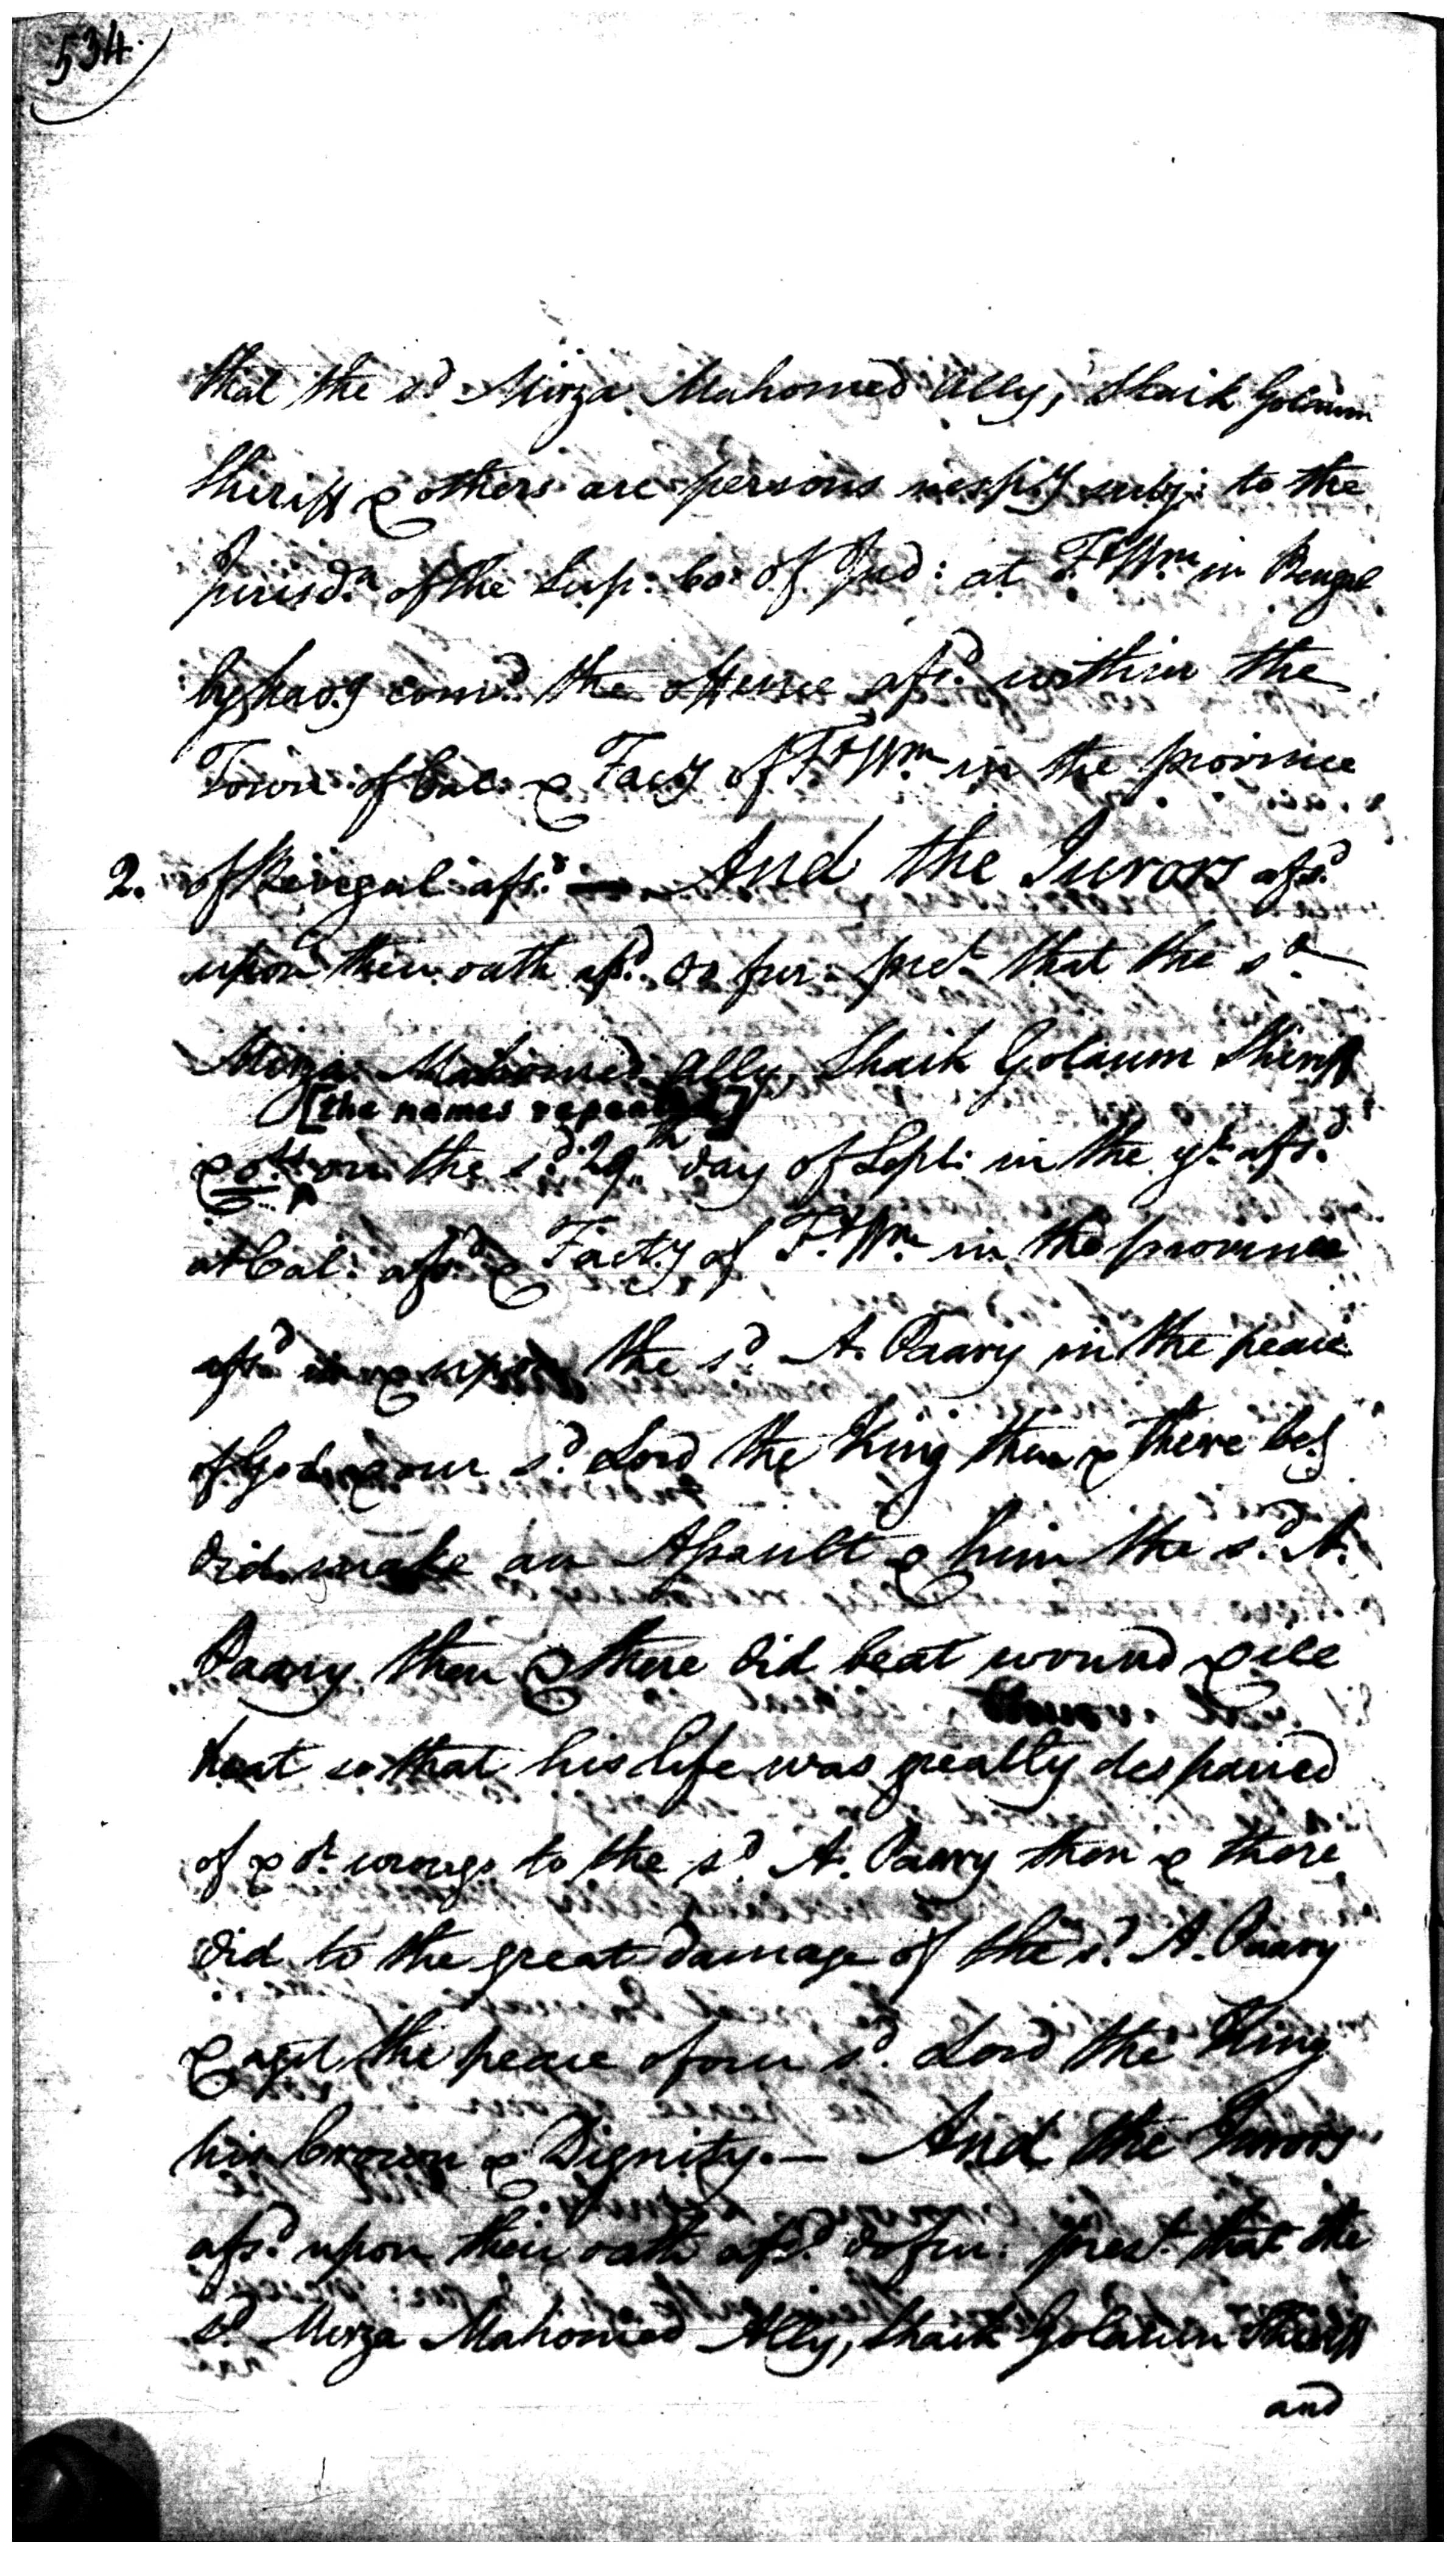 534.
that the sd. Mirza Mahomed Ally, Shaik Golaum
Sheriff & others are persons respy. subj: to the
jurisdn. of the Sup: Co: of Jud: at Ft. Wm. in Bengal
by havg. comd. the offence afsd. within the
Town of Cal: & Facy. of Ft. Wm. in the province
2. of Bengal afsd. — And the Jurors afsd.
upon their oath afsd. do fur: prst. that the sd.
Mirza Mahomed Ally, Shaik Golaum Sheriff
[the names repeated]
& ors. on the sd. 29th day of Sept: in the yr. afsd.
at Cal: afsd. & Facty. of Ft. Wm. in the province
afsd. in & upon the sd. A. Paavy in the peace
of God & our sd. Lord the King then & there beg.
did make an Assault & him the sd. A.
Paavy then & there did beat wound & ill
treat so that his life was greatly despaired
of & or. wrongs to the sd. A. Paavy then & there
did to the great damage of the sd. A. Paavy
& agst. the peace of our sd. Lord the King
his Crown & Dignity. — And the Jurors
afsd. upon their oath afsd. do fur: prest. that the
sd. Mirza Mahomed Ally, Shaik Golaum Sheriff
and